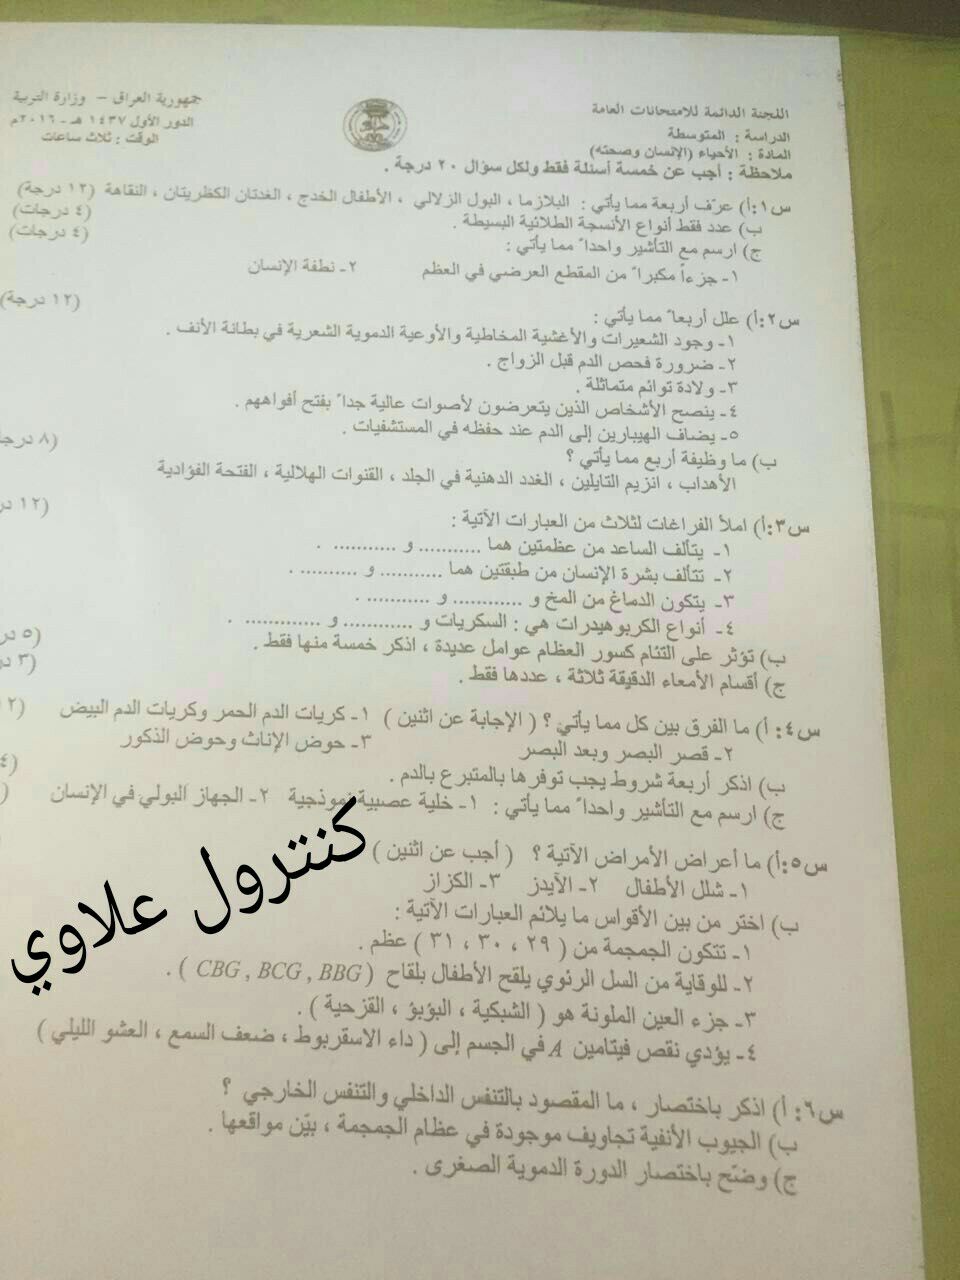 اللجنة الدائمة للامتحانات العامة
جمهورية العراق - وزارة التربية
الدراسة : المتوسطة
الدور الأول ١٤٣٧ هـ - ٢٠١٦م
المادة : الأحياء (الإنسان وصحته)
الوقت : ثلاث ساعات
ملاحظة : أجب عن خمسة أسئلة فقط ولكل سؤال ٢٠ درجة .
س١:أ) عرّف أربعة مما يأتي : البلازما ، البول الزلالي ، الأطفال الخدج ، الغدتان الكظريتان ، النقاهة (١٢ درجة)
ب) عدد فقط أنواع الأنسجة الطلائية البسيطة . (٤ درجات)
ج) ارسم مع التأشير واحداً مما يأتي : (٤ درجات)
١- جزءاً مكبراً من المقطع العرضي في العظم ٢- نطفة الإنسان
س٢:أ) علل أربعاً مما يأتي : (١٢ درجة)
١- وجود الشعيرات والأغشية المخاطية والأوعية الدموية الشعرية في بطانة الأنف .
٢- ضرورة فحص الدم قبل الزواج .
٣- ولادة توائم متماثلة .
٤- ينصح الأشخاص الذين يتعرضون لأصوات عالية جداً بفتح أفواههم .
٥- يضاف الهيبارين إلى الدم عند حفظه في المستشفيات .
ب) ما وظيفة أربع مما يأتي ؟ (٨ درجا
الأهداب ، انزيم التايلين ، الغدد الدهنية في الجلد ، القنوات الهلالية ، الفتحة الفؤادية
س٣:أ) املأ الفراغات لثلاث من العبارات الآتية : (١٢ در
١- يتألف الساعد من عظمتين هما ........... و ........... .
٢- تتألف بشرة الإنسان من طبقتين هما ........... و .......... .
٣- يتكون الدماغ من المخ و ............ و ........... .
٤- أنواع الكربوهيدرات هي : السكريات و ............ و ............. .
ب) تؤثر على التئام كسور العظام عوامل عديدة ، اذكر خمسة منها فقط . (٥ در
ج) أقسام الأمعاء الدقيقة ثلاثة ، عددها فقط . (٣ در
س٤: أ) ما الفرق بين كل مما يأتي ؟ ( الإجابة عن اثنين ) ١- كريات الدم الحمر وكريات الدم البيض (١٢
٢- قصر البصر وبعد البصر ٣- حوض الإناث وحوض الذكور
ب) اذكر أربعة شروط يجب توفرها بالمتبرع بالدم . (٤
ج) ارسم مع التأشير واحداً مما يأتي : ١- خلية عصبية نموذجية ٢- الجهاز البولي في الإنسان
س٥:أ) ما أعراض الأمراض الآتية ؟ ( أجب عن اثنين )
١- شلل الأطفال ٢- الآيدز ٣- الكزاز
ب) اختر من بين الأقواس ما يلائم العبارات الآتية :
١- تتكون الجمجمة من ( ٢٩ ، ٣٠ ، ٣١ ) عظم .
٢- للوقاية من السل الرئوي يلقح الأطفال بلقاح ( CBG , BCG , BBG ) .
٣- جزء العين الملونة هو ( الشبكية ، البؤبؤ ، القزحية ) .
٤- يؤدي نقص فيتامين A في الجسم إلى ( داء الاسقربوط ، ضعف السمع ، العشو الليلي )
س٦: أ) اذكر باختصار ، ما المقصود بالتنفس الداخلي والتنفس الخارجي ؟
ب) الجيوب الأنفية تجاويف موجودة في عظام الجمجمة ، بيّن مواقعها .
ج) وضّح باختصار الدورة الدموية الصغرى .
كنترول علاوي